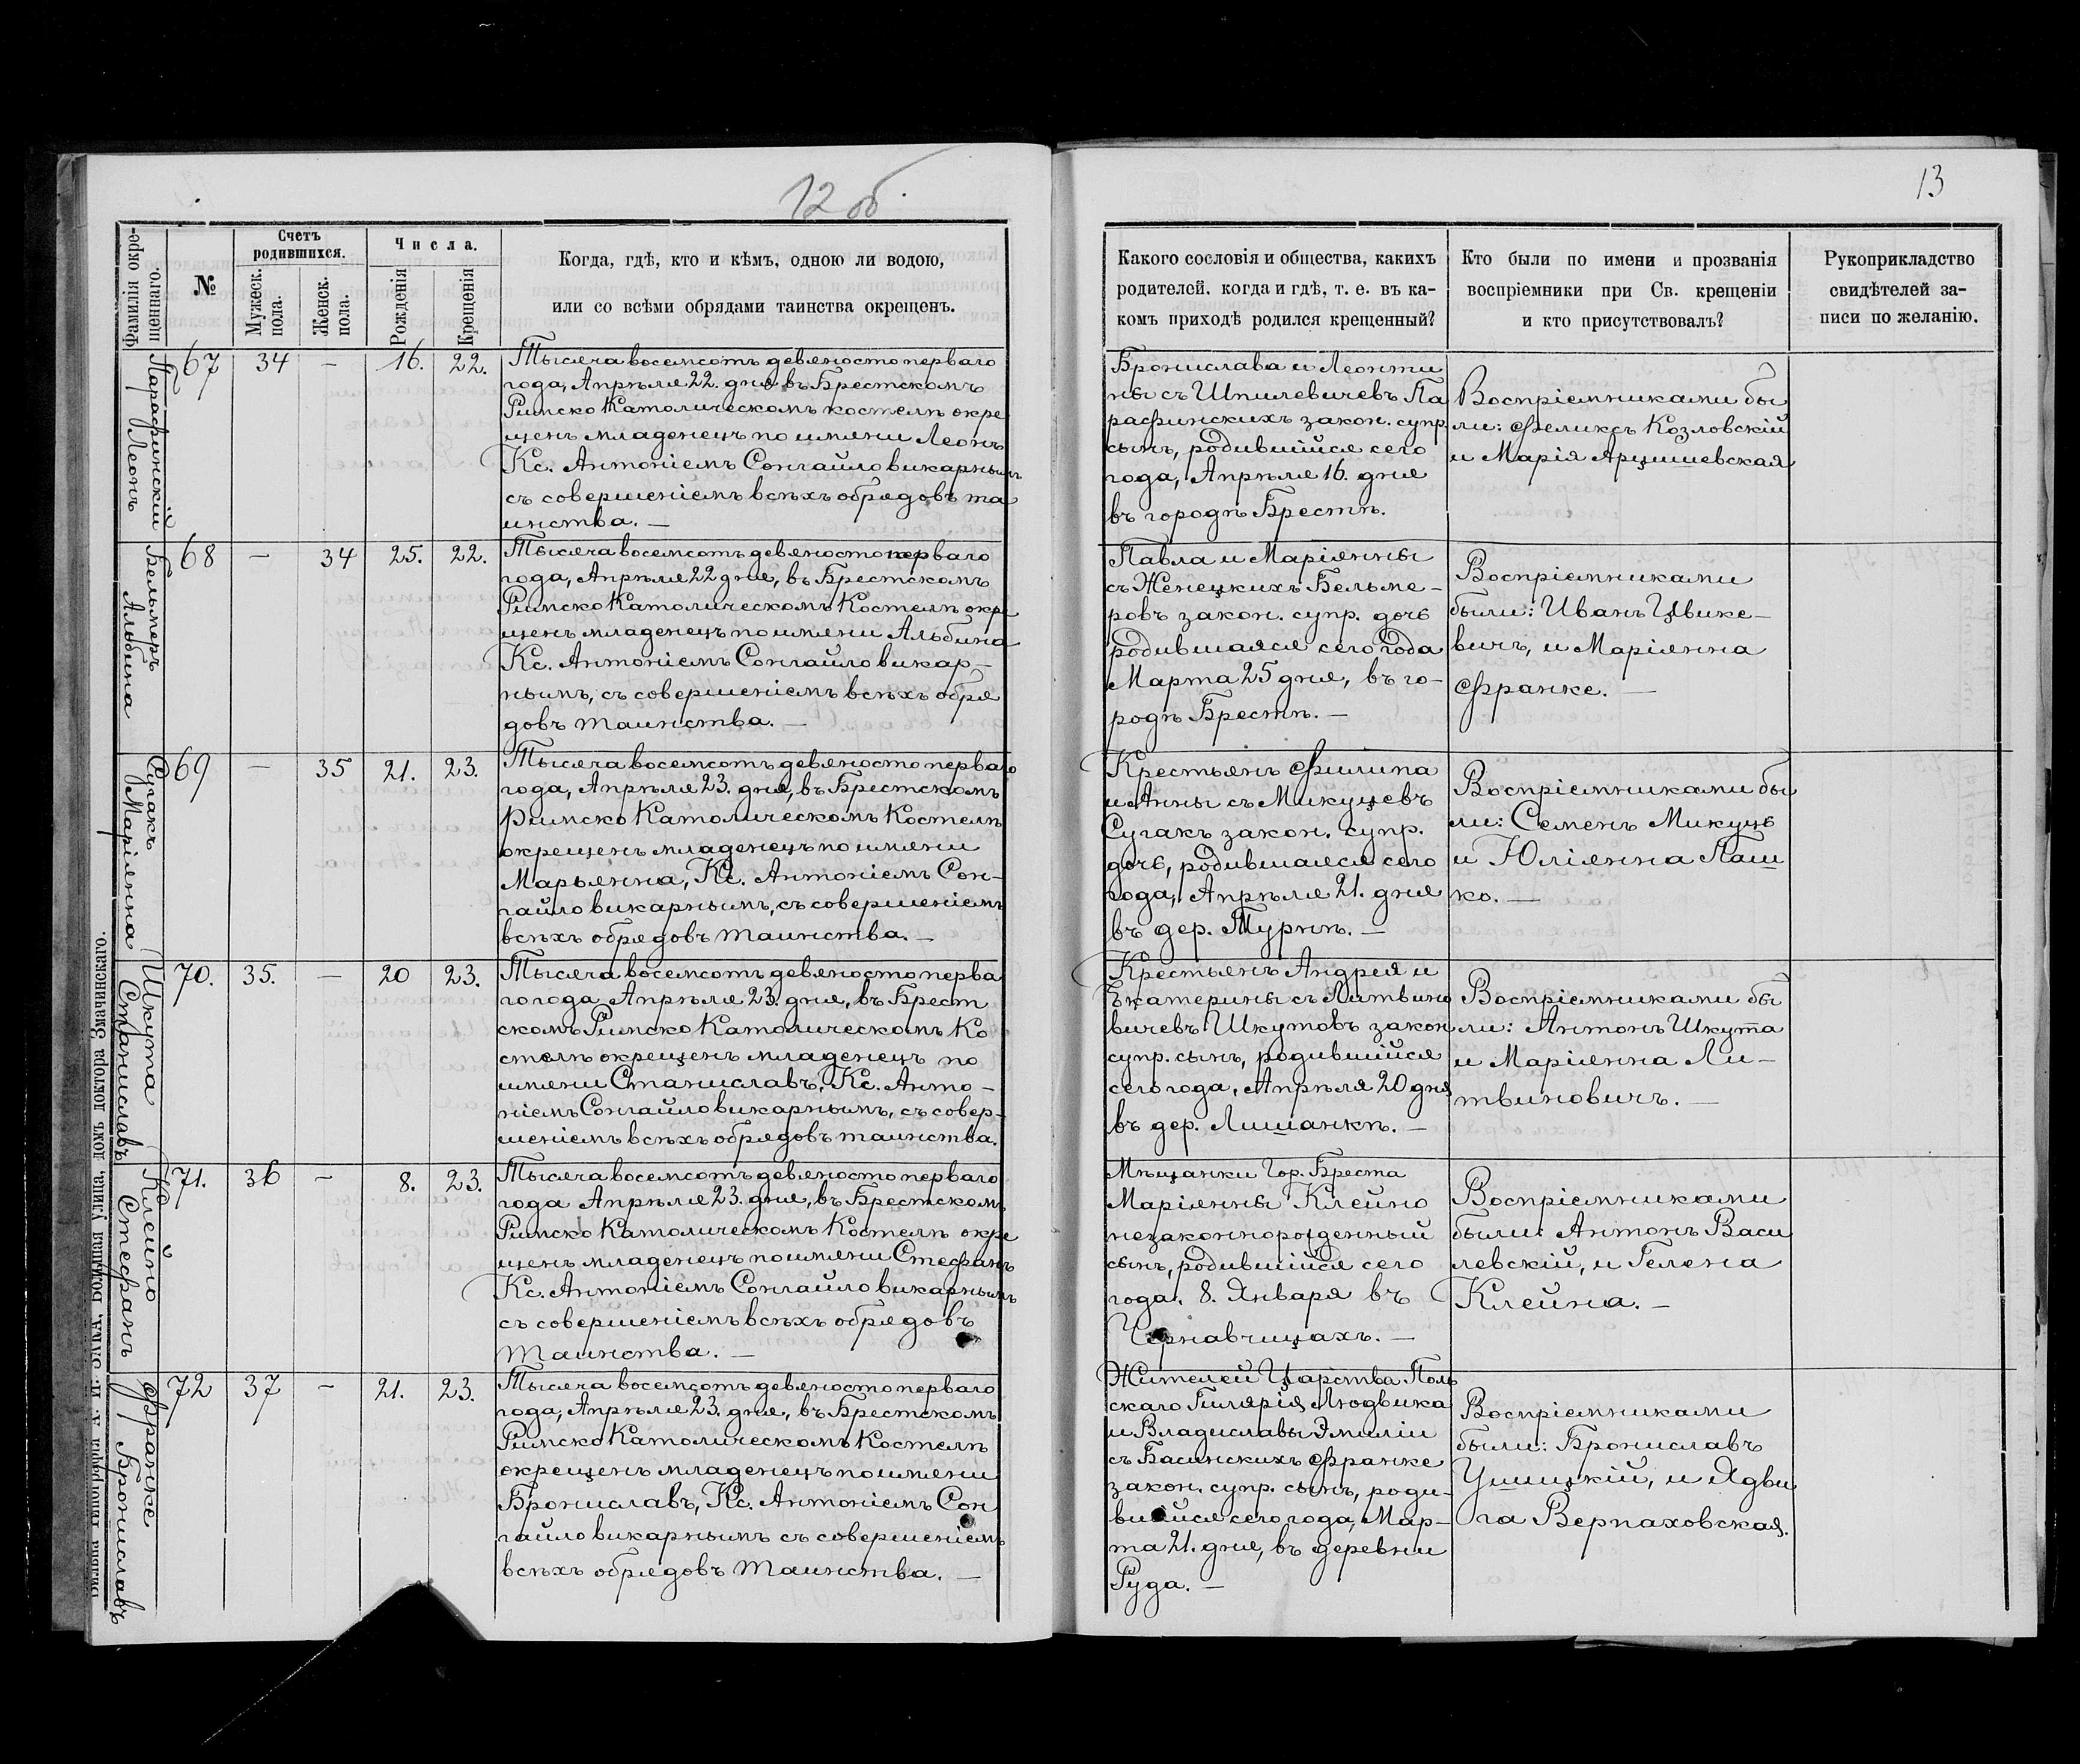 12 об.
Фамилія окре-
щеннаго.
№
Счетъ
родившихся.
Мужеск.
пола.
Женск.
пола.
Числа.
Рожденія
Крещенія
Когда, гдѣ, кто и кѣмъ, одною ли водою,
или со всѣми обрядами таинства окрещенъ.
Парафинскій
Леонъ
67 34 — 16. 22.
Тысяча восемсотъ девяносто перваго
года, Апрѣля 22. дня въ Брестскомъ
Римско Католическомъ костелѣ окре
щенъ младенецъ по имени Леонъ
Кс. Антоніемъ Сонгайло викарнымъ
съ совершеніемъ всѣхъ обрядовъ та
инства. —
Бельмеръ
Альбина
68 — 34 25. 22.
Тысяча восемсотъ девяносто перваго
года, Апрѣля 22 дня, въ Брестскомъ
Римско Католическомъ Костелѣ окре
щенъ младенецъ по имени Альбина
Кс. Антоніемъ Сонгайло викар-
нымъ, съ совершеніемъ всѣхъ обря
довъ таинства. —
Сугакъ
Маріянна
69 — 35 21. 23.
Тысяча восемсотъ девяносто перваго
года, Апрѣля 23. дня, въ Брестскомъ
Римско Католическомъ Костелѣ
окрещенъ младенецъ по имени
Марьянна, Кс. Антоніемъ Сон-
гайло викарнымъ, съ совершеніемъ
всѣхъ обрядовъ таинства. —
Шкута
Станиславъ
70. 35. — 20 23.
Тысяча восемсотъ девяносто перва
го года Апрѣля 23. дня, въ Брест
скомъ Римско Католическомъ Ко
стелѣ окрещенъ младенецъ по
имени Станиславъ, Кс. Анто-
ніемъ Сонгайло викарнымъ, съ совер-
шеніемъ всѣхъ обрядовъ таинства.
Клейно
Стефанъ
71. 36 — 8. 23.
Тысяча восемсотъ девяносто перваго
года Апрѣля 23. дня, въ Брестскомъ
Римско Католическомъ Костелѣ окре
щенъ младенецъ по имени Стефанъ
Кс. Антоніемъ Сонгайло викарнымъ
съ совершеніемъ всѣхъ обрядовъ
таинства. —
Франке
Брониславъ
72 37 — 21. 23.
Тысяча восемсотъ девяносто перваго
года, Апрѣля 23. дня, въ Брестскомъ
Римско Католическомъ Костелѣ
окрещенъ младенецъ по имени
Брониславъ, Кс. Антоніемъ Сон
гайло викарнымъ съ совершеніемъ
всѣхъ обрядовъ таинства. —
улица, домъ доктора Змачинскаго.
13
Какого сословія и общества, какихъ
родителей, когда и гдѣ, т. е. въ ка-
комъ приходѣ родился крещенный?
Кто были по имени и прозванія
воспріемники при Св. крещеніи
и кто присутствовалъ?
Рукоприкладство
свидѣтелей за-
писи по желанію.
Бронислава и Леонти
ны съ Шпилевичевъ Па
рафинскихъ закон. супр.
сынъ, родившійся сего
года, Апрѣля 16. дня
въ городѣ Брестѣ.
Воспріемниками бы
ли: Феликсъ Козловскій
и Марія Арцишевская
Павла и Маріянны
съ Женецкихъ Бельме-
ровъ закон. супр. дочь
родившаяся сего года
Марта 25 дня, въ го-
родѣ Брестѣ. —
Воспріемниками
были: Иванъ Цвике-
вичъ, и Маріянна
Франке. —
Крестьянъ Филипа
и Анны съ Микуцевъ
Сугакъ закон. супр.
дочь, родившаяся сего
года, Апрѣля 21. дня
въ дер. Турнѣ. —
Воспріемниками бы
ли: Семенъ Микуць
и Юліянна Паш
ко. —
Крестьянъ Андрея и
Екатерины съ Литвино
вичевъ Шкутовъ закон
супр. сынъ, родившійся
сего года, Апрѣля 20 дня
въ дер. Лишанкѣ. —
Воспріемниками бы
ли: Антонъ Шкута
и Маріянна Ли-
твиновичъ. —
Мѣщанки Гор. Бреста
Маріянны Клейно
незаконнорожденный
сынъ, родившійся сего
года. 8. Января въ
Чернавчицахъ. —
Воспріемниками
были: Антонъ Васи
левскій, и Гелена
Клейна. —
Жителей Царства Поль
скаго Гилярія Людвика
и Владиславы Эмиліи
съ Басинскихъ Франке
закон. супр. сынъ, роди-
вшійся сего года, Мар-
та 21. дня, въ деревни
Руда. —
Воспріемниками
были: Брониславъ
Ушицкій, и Ядви
га Верпаховская.